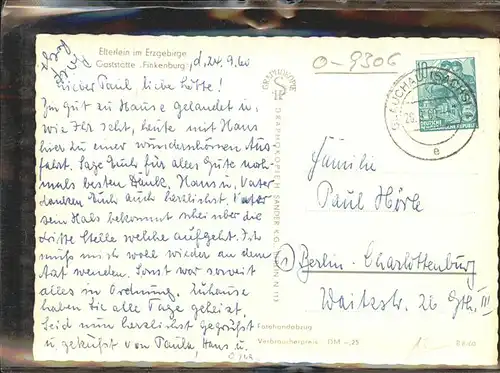 Elterlein im Erzgebirge
Gaststätte „Finkenburg"
d. 24.9.60
O-9306
Lieber Paul, liebe Lotte!
Gut zu Hause gelandet u.
wie Ihr seht, heute mit Hans
hier zu einer wunderschönen Aus
fahrt. Sage Euch für alles Gute noch-
mals besten Dank, Hans u. Vater
danken Euch auch herzlichst. Vater
sein Hals bekommt scheinbar die
dritte Stelle welche aufgeht. Ich
muß mich wohl wieder an den
Arzt wenden. Sonst war soweit
alles in Ordnung, Zuhause
haben Sie alle Tage geheizt.
Seid nun herzlichst gegrüßt
u. geküßt von Paula, Hans u.
GRAPHOKOPIE
GRAPHOKOPIE H. SANDER K.G. BERLIN N 113
GLAUCHAU (SACHS)
e
DEUTSCHE
Familie
Paul Hörk
1 Berlin-Charlottenburg
Waitzstr. 26 Gth. III
Fotohandabzug
Verbraucherpreis DM -,25